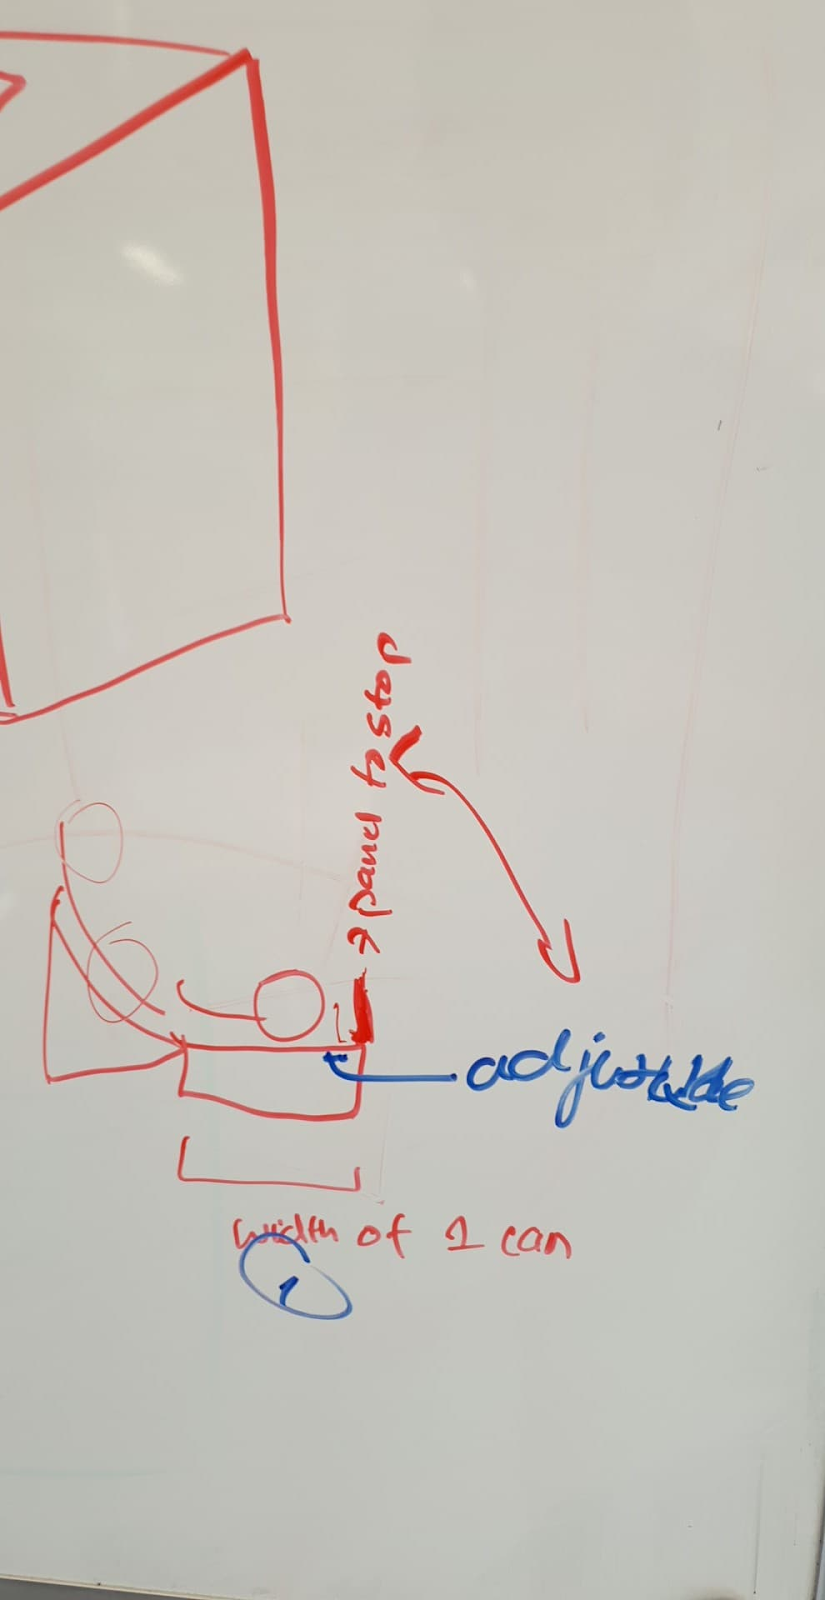 → panel to stop
adjustable
width of 1 can
1